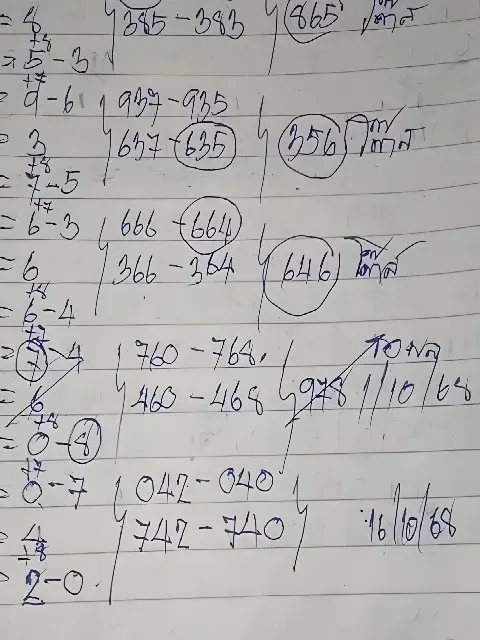 = 8 385-383 865 โต๊ด
+8
= 5-3
+7
= 9-6 937-935
= 3 637-635 356 โต๊ด
+8
= 7-5
+7
= 6-3 666-664
= 6 366-364 646 โต๊ด
+8
= 6-4
+7
= 7-4 760-768. รอผล
= 6 460-468 978 1/10/68
+8
= 0-8
+7
= 0-7 042-040
= 4 742-740 16/10/68
+8
= 2-0